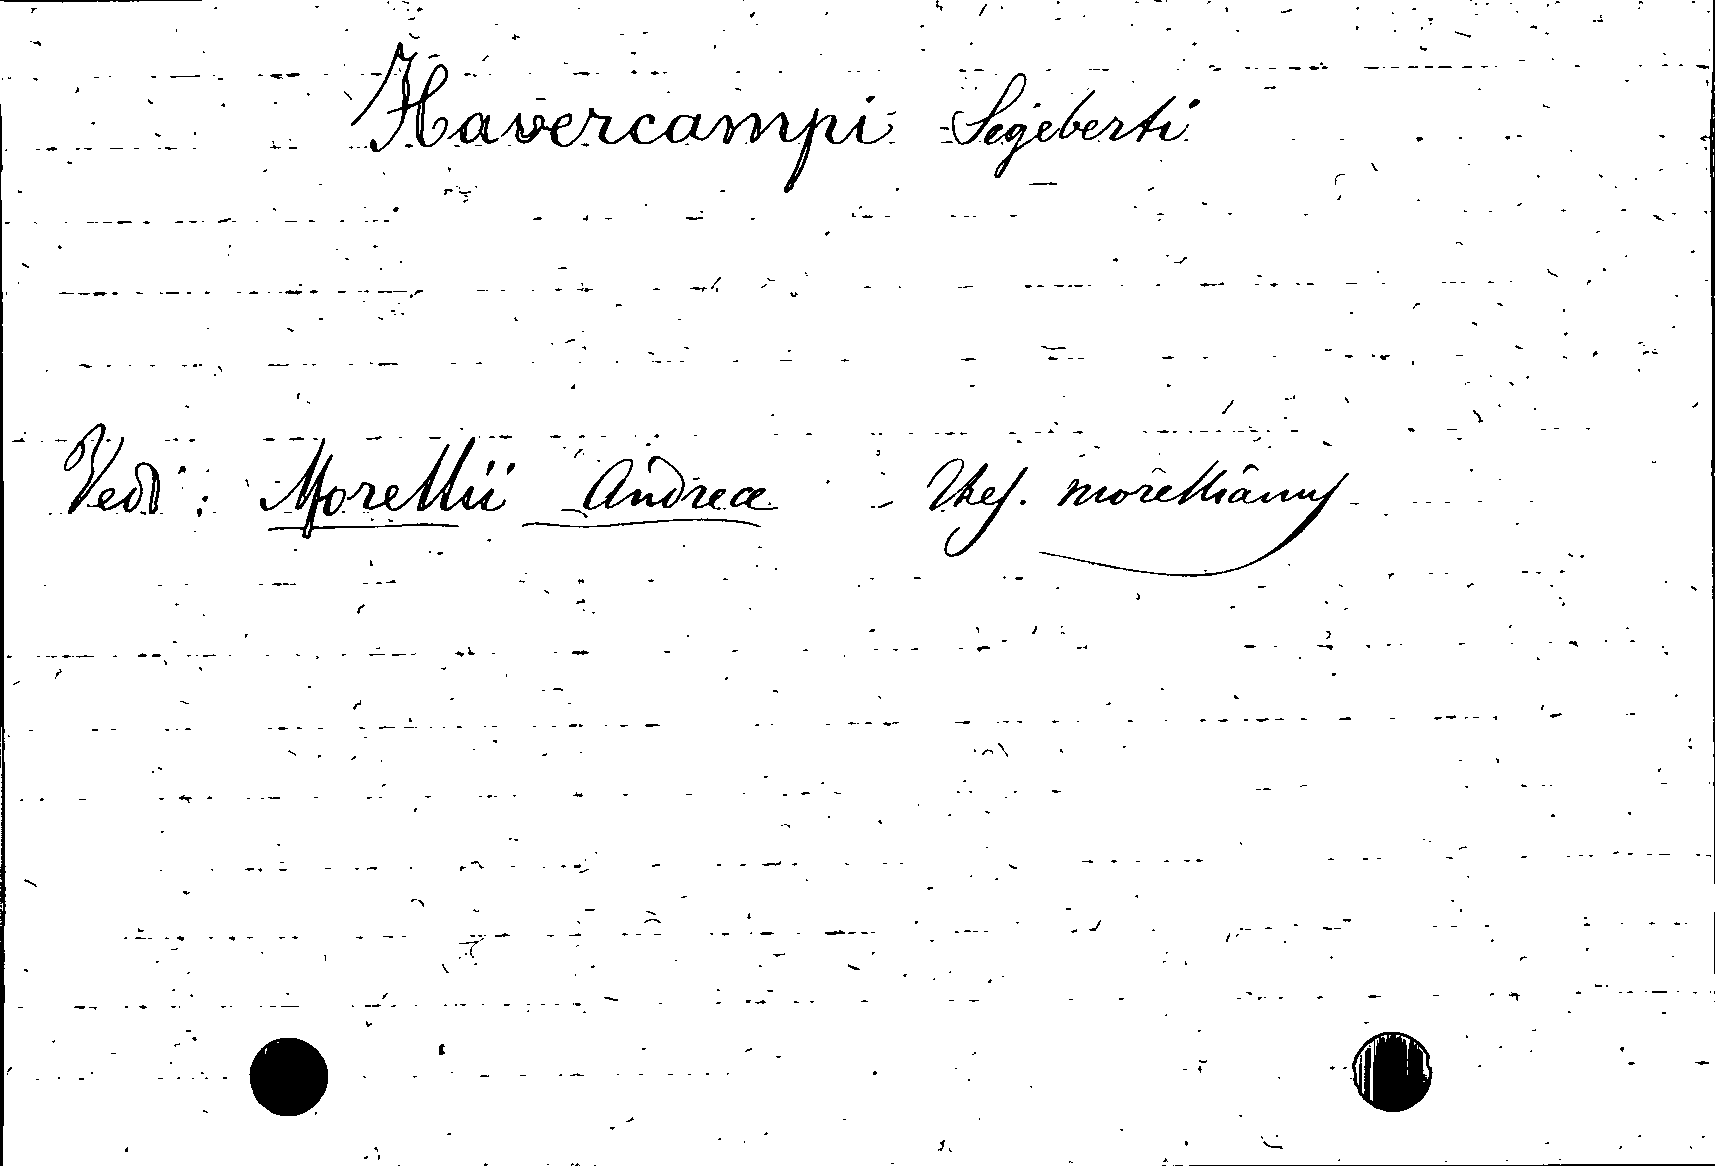 Havercampi Sigeberti
Vedi : Morellii Andreæ - Thes. morellianus